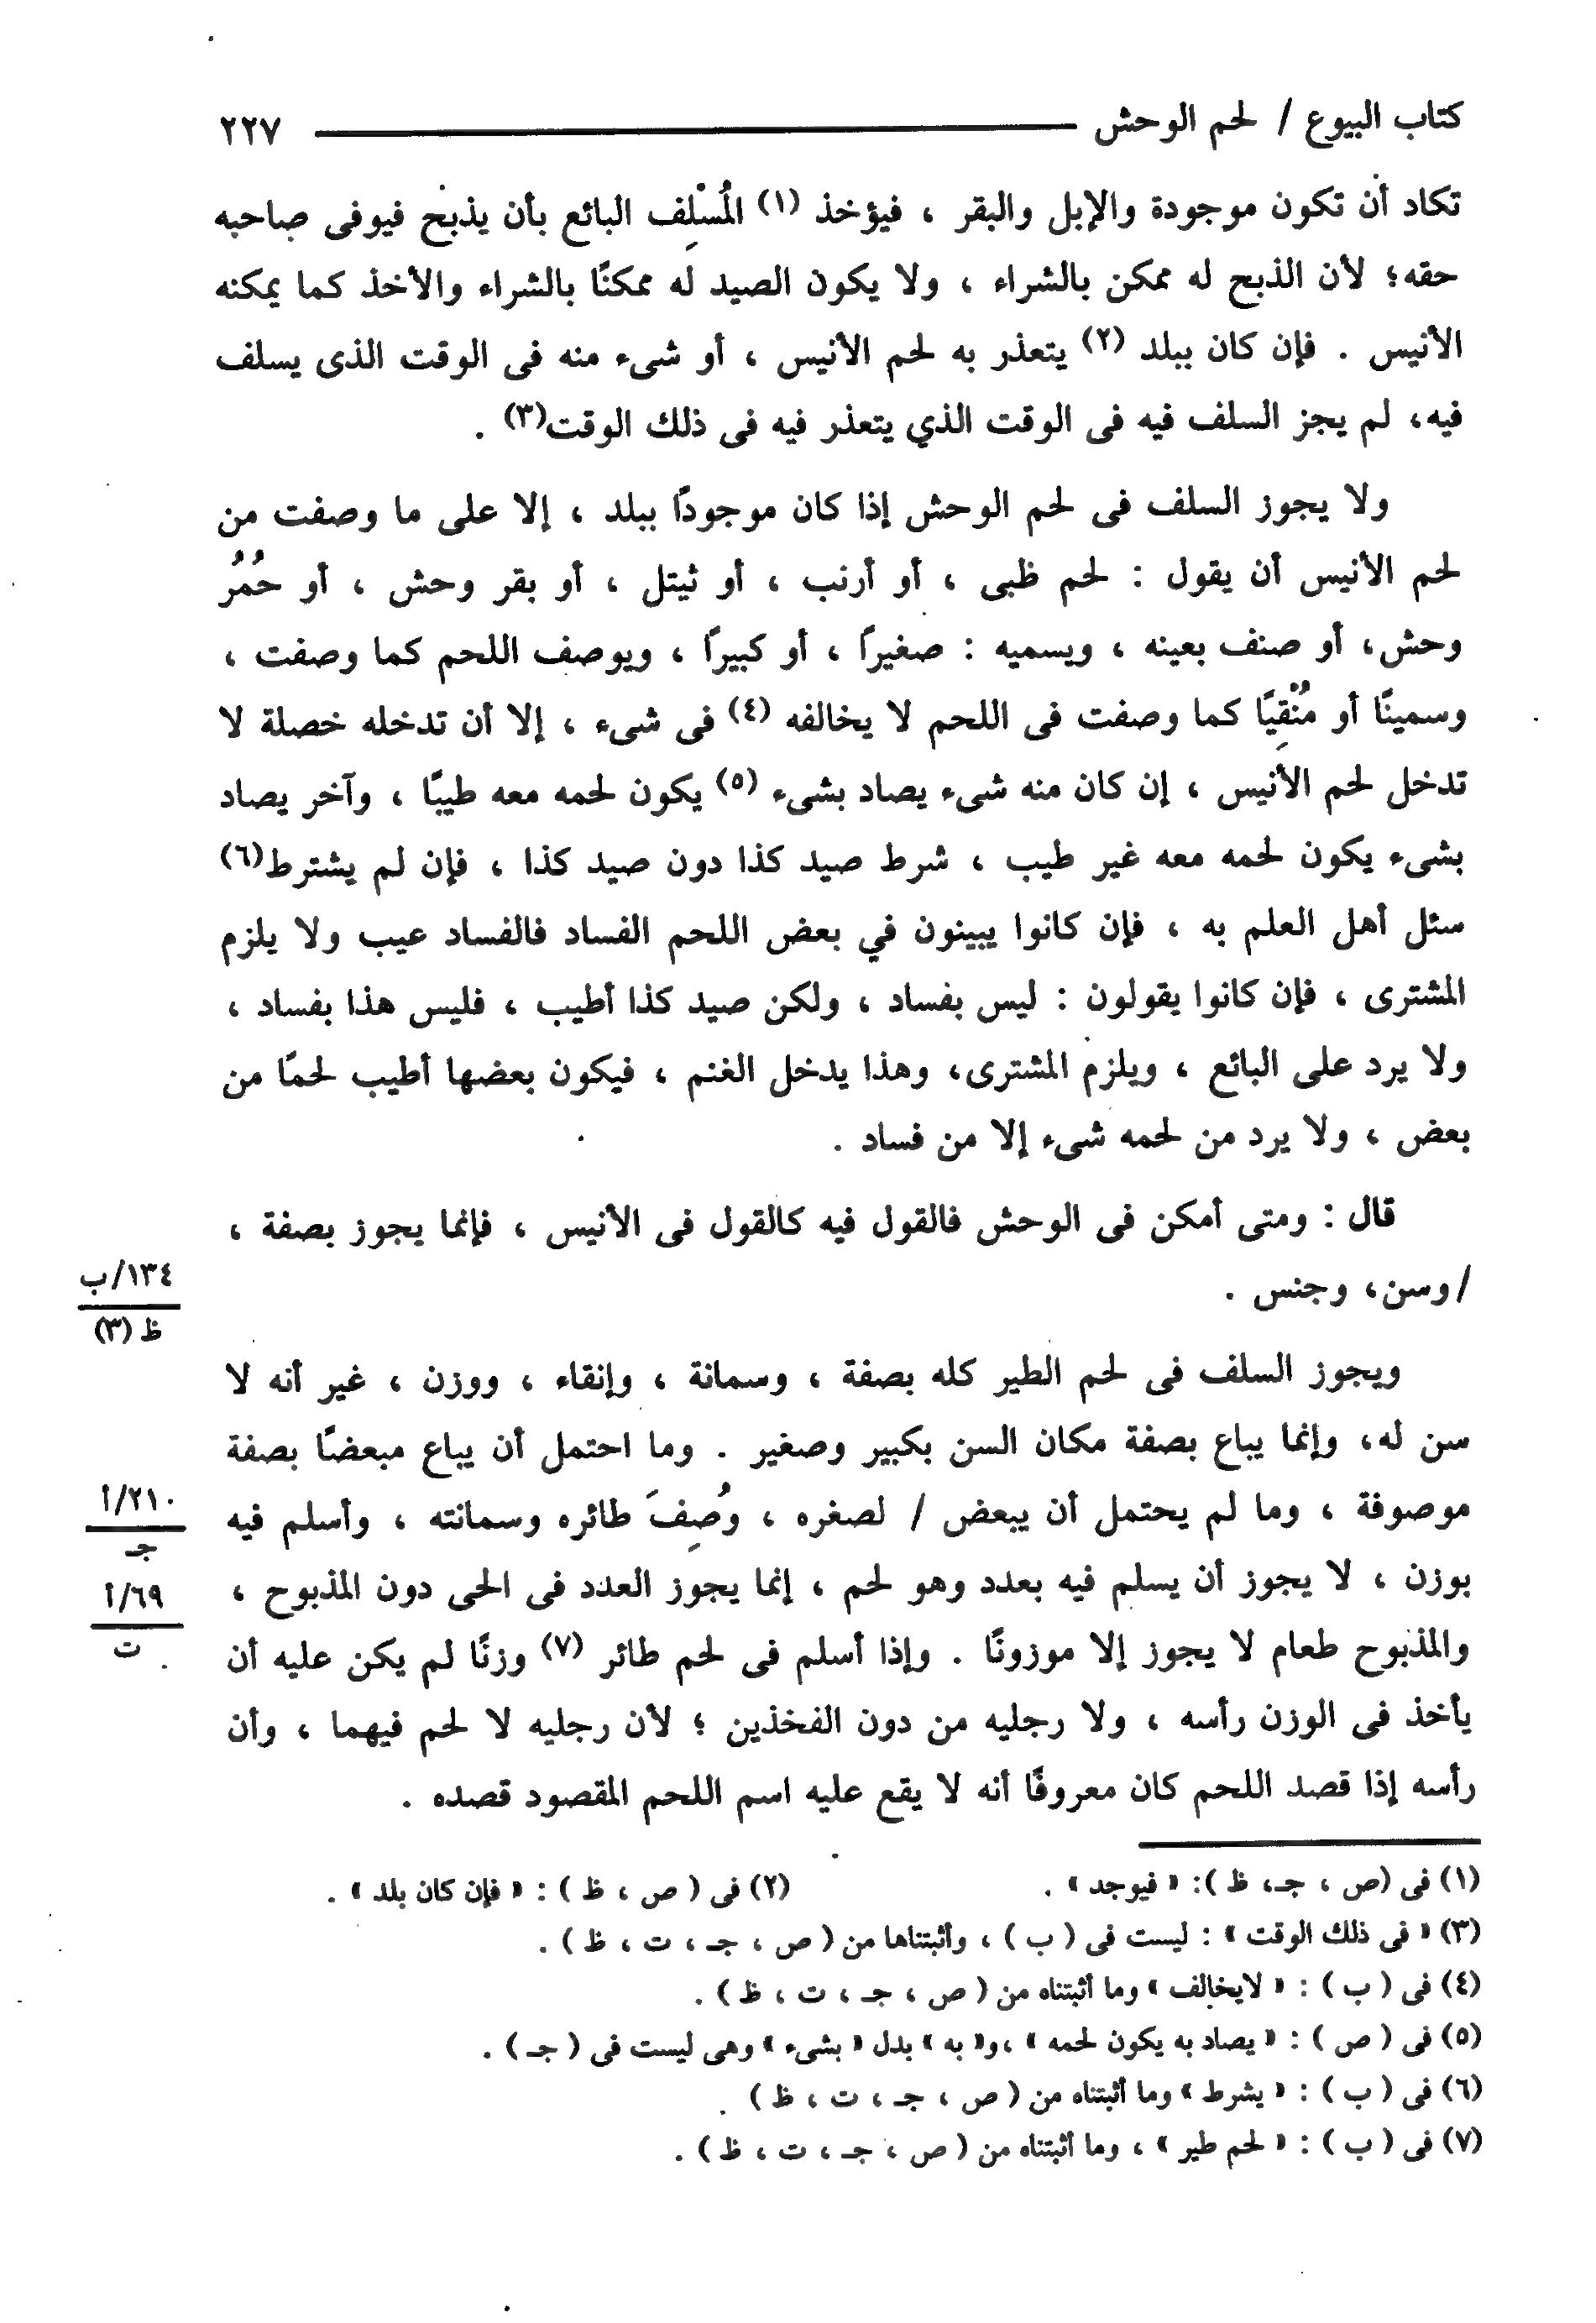 كتاب البيوع / لحم الوحش ٢٢٧
تكاد أن تكون موجودة والإبل والبقر ، فيؤخذ (١) المُسْلِف البائع بأن يذبح فيوفى صاحبه
حقه؛ لأن الذبح له ممكن بالشراء ، ولا يكون الصيد له ممكنًا بالشراء والأخذ كما يمكنه
الأنيس . فإن كان ببلد (٢) يتعذر به لحم الأنيس ، أو شىء منه فى الوقت الذى يسلف
فيه، لم يجز السلف فيه فى الوقت الذي يتعذر فيه فى ذلك الوقت(٣) .
ولا يجوز السلف فى لحم الوحش إذا كان موجودًا ببلد ، إلا على ما وصفت من
لحم الأنيس أن يقول : لحم ظبى ، أو أرنب ، أو ثيتل ، أو بقر وحش ، أو حُمُر
وحش، أو صنف بعينه ، ويسميه : صغيرًا ، أو كبيرًا ، ويوصف اللحم كما وصفت ،
وسمينًا أو مُنْقِيًا كما وصفت فى اللحم لا يخالفه (٤) فى شىء ، إلا أن تدخله خصلة لا
تدخل لحم الأنيس ، إن كان منه شىء يصاد بشىء (٥) يكون لحمه معه طيبًا ، وآخر يصاد
بشىء يكون لحمه معه غير طيب ، شرط صيد كذا دون صيد كذا ، فإن لم يشترط(٦)
سئل أهل العلم به ، فإن كانوا يبينون في بعض اللحم الفساد فالفساد عيب ولا يلزم
المشترى ، فإن كانوا يقولون : ليس بفساد ، ولكن صيد كذا أطيب ، فليس هذا بفساد ،
ولا يرد على البائع ، ويلزم المشترى، وهذا يدخل الغنم ، فيكون بعضها أطيب لحمًا من
بعض ، ولا يرد من لحمه شىء إلا من فساد .
قال : ومتى أمكن فى الوحش فالقول فيه كالقول فى الأنيس ، فإنما يجوز بصفة ،
/وسن، وجنس .
١٣٤/ب
ظ (٣)
ويجوز السلف فى لحم الطير كله بصفة ، وسمانة ، وإنقاء ، ووزن ، غير أنه لا
سن له، وإنما يباع بصفة مكان السن بكبير وصغير . وما احتمل أن يباع مبعضًا بصفة
موصوفة ، وما لم يحتمل أن يبعض / لصغره ، وُصِفَ طائره وسمانته ، وأسلم فيه
٢١٠/أ
جـ
بوزن ، لا يجوز أن يسلم فيه بعدد وهو لحم ، إنما يجوز العدد فى الحى دون المذبوح ،
٦٩/أ
ت
والمذبوح طعام لا يجوز إلا موزونًا . وإذا أسلم فى لحم طائر (٧) وزنًا لم يكن عليه أن
يأخذ فى الوزن رأسه ، ولا رجليه من دون الفخذين ؛ لأن رجليه لا لحم فيهما ، وأن
رأسه إذا قصد اللحم كان معروفًا أنه لا يقع عليه اسم اللحم المقصود قصده .
(١) فى (ص ، جـ، ظ ): « فيوجد » . (٢) فى ( ص ، ظ ) : « فإن كان بلد » .
(٣) « فى ذلك الوقت » : ليست فى ( ب ) ، وأثبتناها من ( ص ، جـ ، ت ، ظ ) .
(٤) فى ( ب ) : « لايخالف » وما أثبتناه من ( ص ، جـ ، ت ، ظ ) .
(٥) فى ( ص ) : « يصاد به يكون لحمه » ،و« به » بدل « بشىء » وهى ليست فى ( جـ ) .
(٦) فى ( ب ) : « يشرط » وما أثبتناه من ( ص ، جـ ، ت ، ظ ) .
(٧) فى ( ب ) : « لحم طير » ، وما أثبتناه من ( ص ، جـ ، ت ، ظ ) .